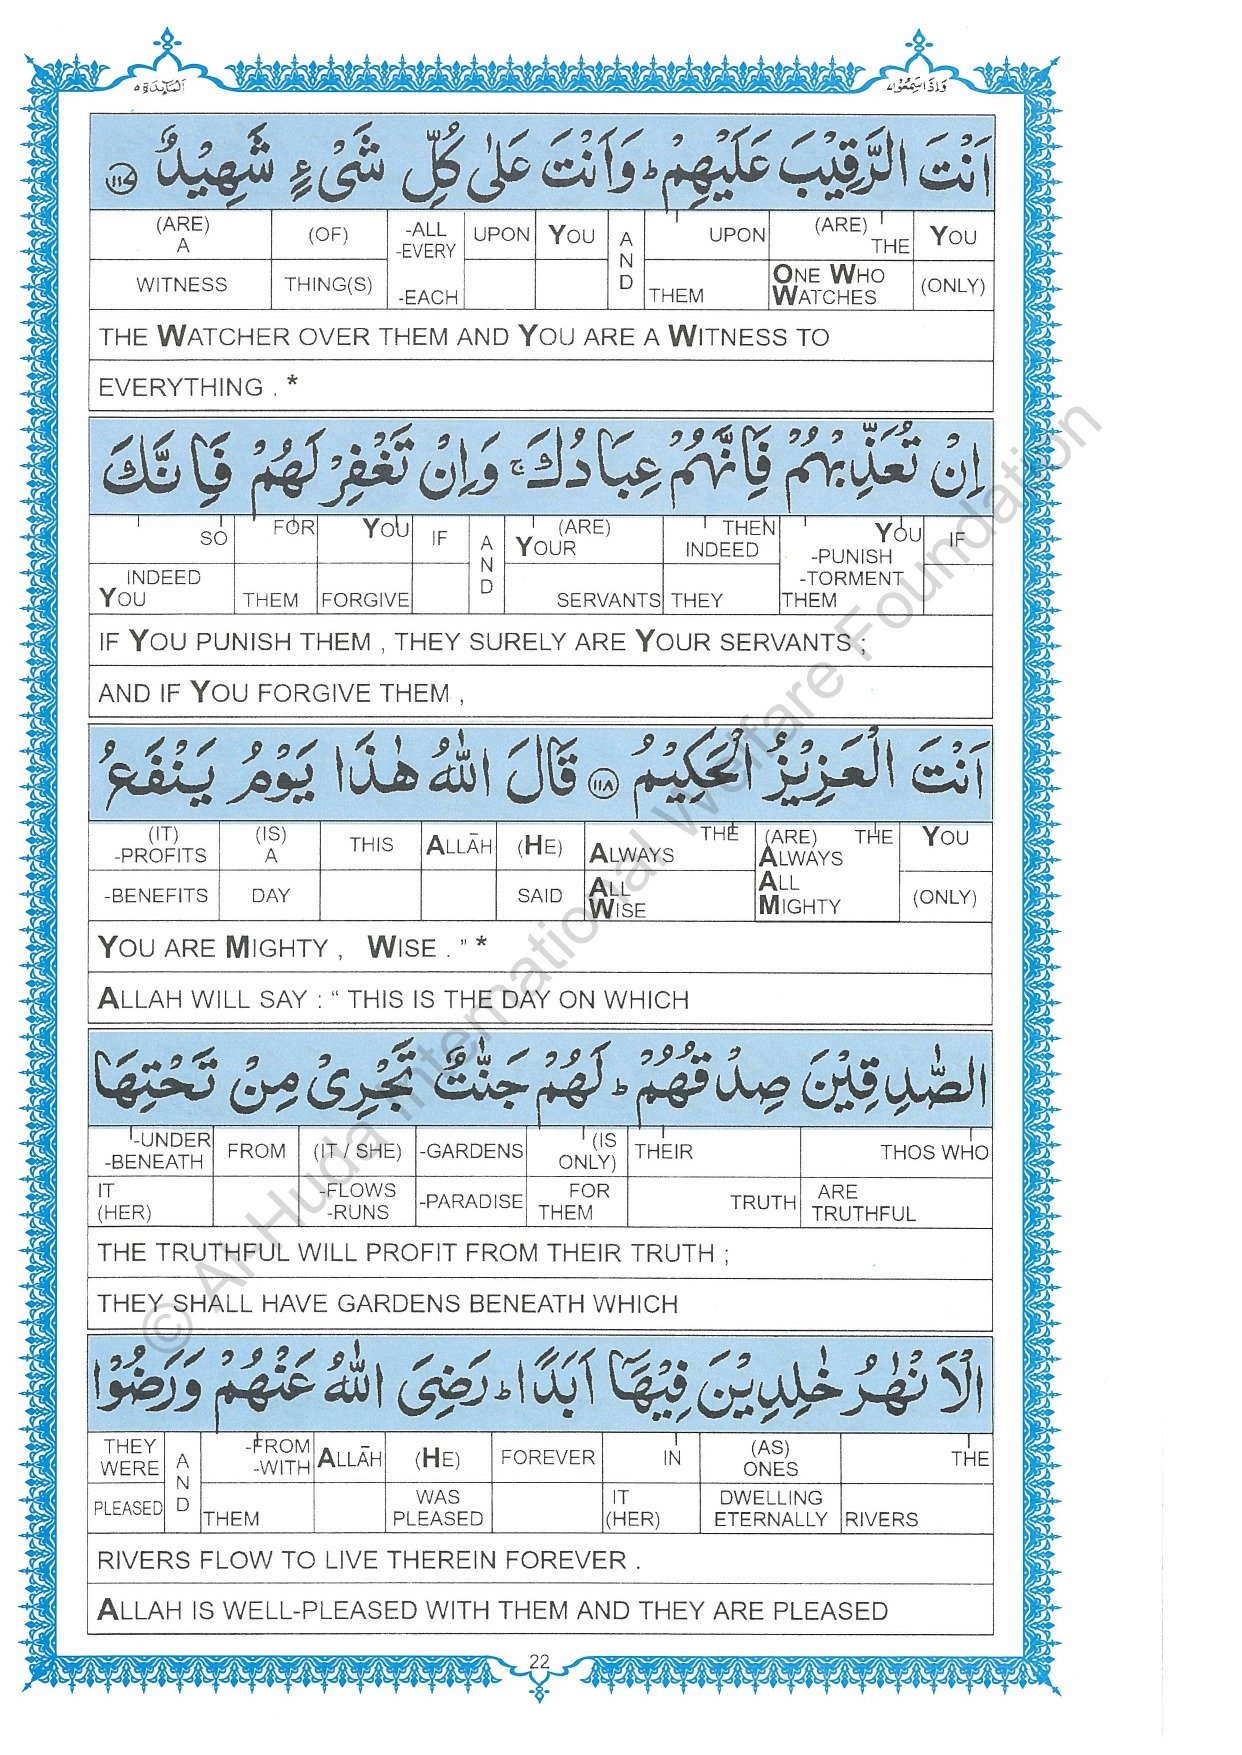 وَاِذَا سَمِعُوْا ٧
اَلْمَآئِدَة ٥
اَنْتَ الرَّقِيْبَ عَلَيْهِمْ ؕ وَاَنْتَ عَلٰى كُلِّ شَىْءٍ شَهِيْدٌ ﴿١١٧﴾
(ARE) A (OF) -ALL -EVERY UPON YOU AND UPON (ARE) THE YOU
WITNESS THING(S) -EACH THEM ONE WHO WATCHES (ONLY)
THE WATCHER OVER THEM AND YOU ARE A WITNESS TO
EVERYTHING . *
اِنْ تُعَذِّبْهُمْ فَاِنَّهُمْ عِبَادُكَ ۚ وَاِنْ تَغْفِرْ لَهُمْ فَاِنَّكَ
SO FOR YOU IF AND (ARE) YOUR THEN INDEED YOU -PUNISH IF
INDEED YOU THEM FORGIVE SERVANTS THEY -TORMENT THEM
IF YOU PUNISH THEM , THEY SURELY ARE YOUR SERVANTS ;
AND IF YOU FORGIVE THEM ,
اَنْتَ الْعَزِيْزُ الْحَكِيْمُ ﴿١١٨﴾ قَالَ اللّٰهُ هٰذَا يَوْمُ يَنْفَعُ
(IT) -PROFITS (IS) A THIS ALLĀH (HE) THE ALWAYS (ARE) THE ALWAYS YOU
-BENEFITS DAY SAID ALL WISE ALL MIGHTY (ONLY)
YOU ARE MIGHTY , WISE . ” *
ALLAH WILL SAY : “ THIS IS THE DAY ON WHICH
الصّٰدِقِيْنَ صِدْقُهُمْ ؕ لَهُمْ جَنّٰتٌ تَجْرِىْ مِنْ تَحْتِهَا
-UNDER -BENEATH FROM (IT / SHE) -GARDENS (IS ONLY) THEIR THOS WHO
IT (HER) -FLOWS -RUNS -PARADISE FOR THEM TRUTH ARE TRUTHFUL
THE TRUTHFUL WILL PROFIT FROM THEIR TRUTH ;
THEY SHALL HAVE GARDENS BENEATH WHICH
الْاَنْهٰرُ خٰلِدِيْنَ فِيْهَاۤ اَبَدًا ؕ رَضِىَ اللّٰهُ عَنْهُمْ وَرَضُوْا
THEY WERE AND -FROM -WITH ALLĀH (HE) FOREVER IN (AS) ONES THE
PLEASED THEM WAS PLEASED IT (HER) DWELLING ETERNALLY RIVERS
RIVERS FLOW TO LIVE THEREIN FOREVER .
ALLAH IS WELL-PLEASED WITH THEM AND THEY ARE PLEASED
22
© Al-Huda International Welfare Foundation